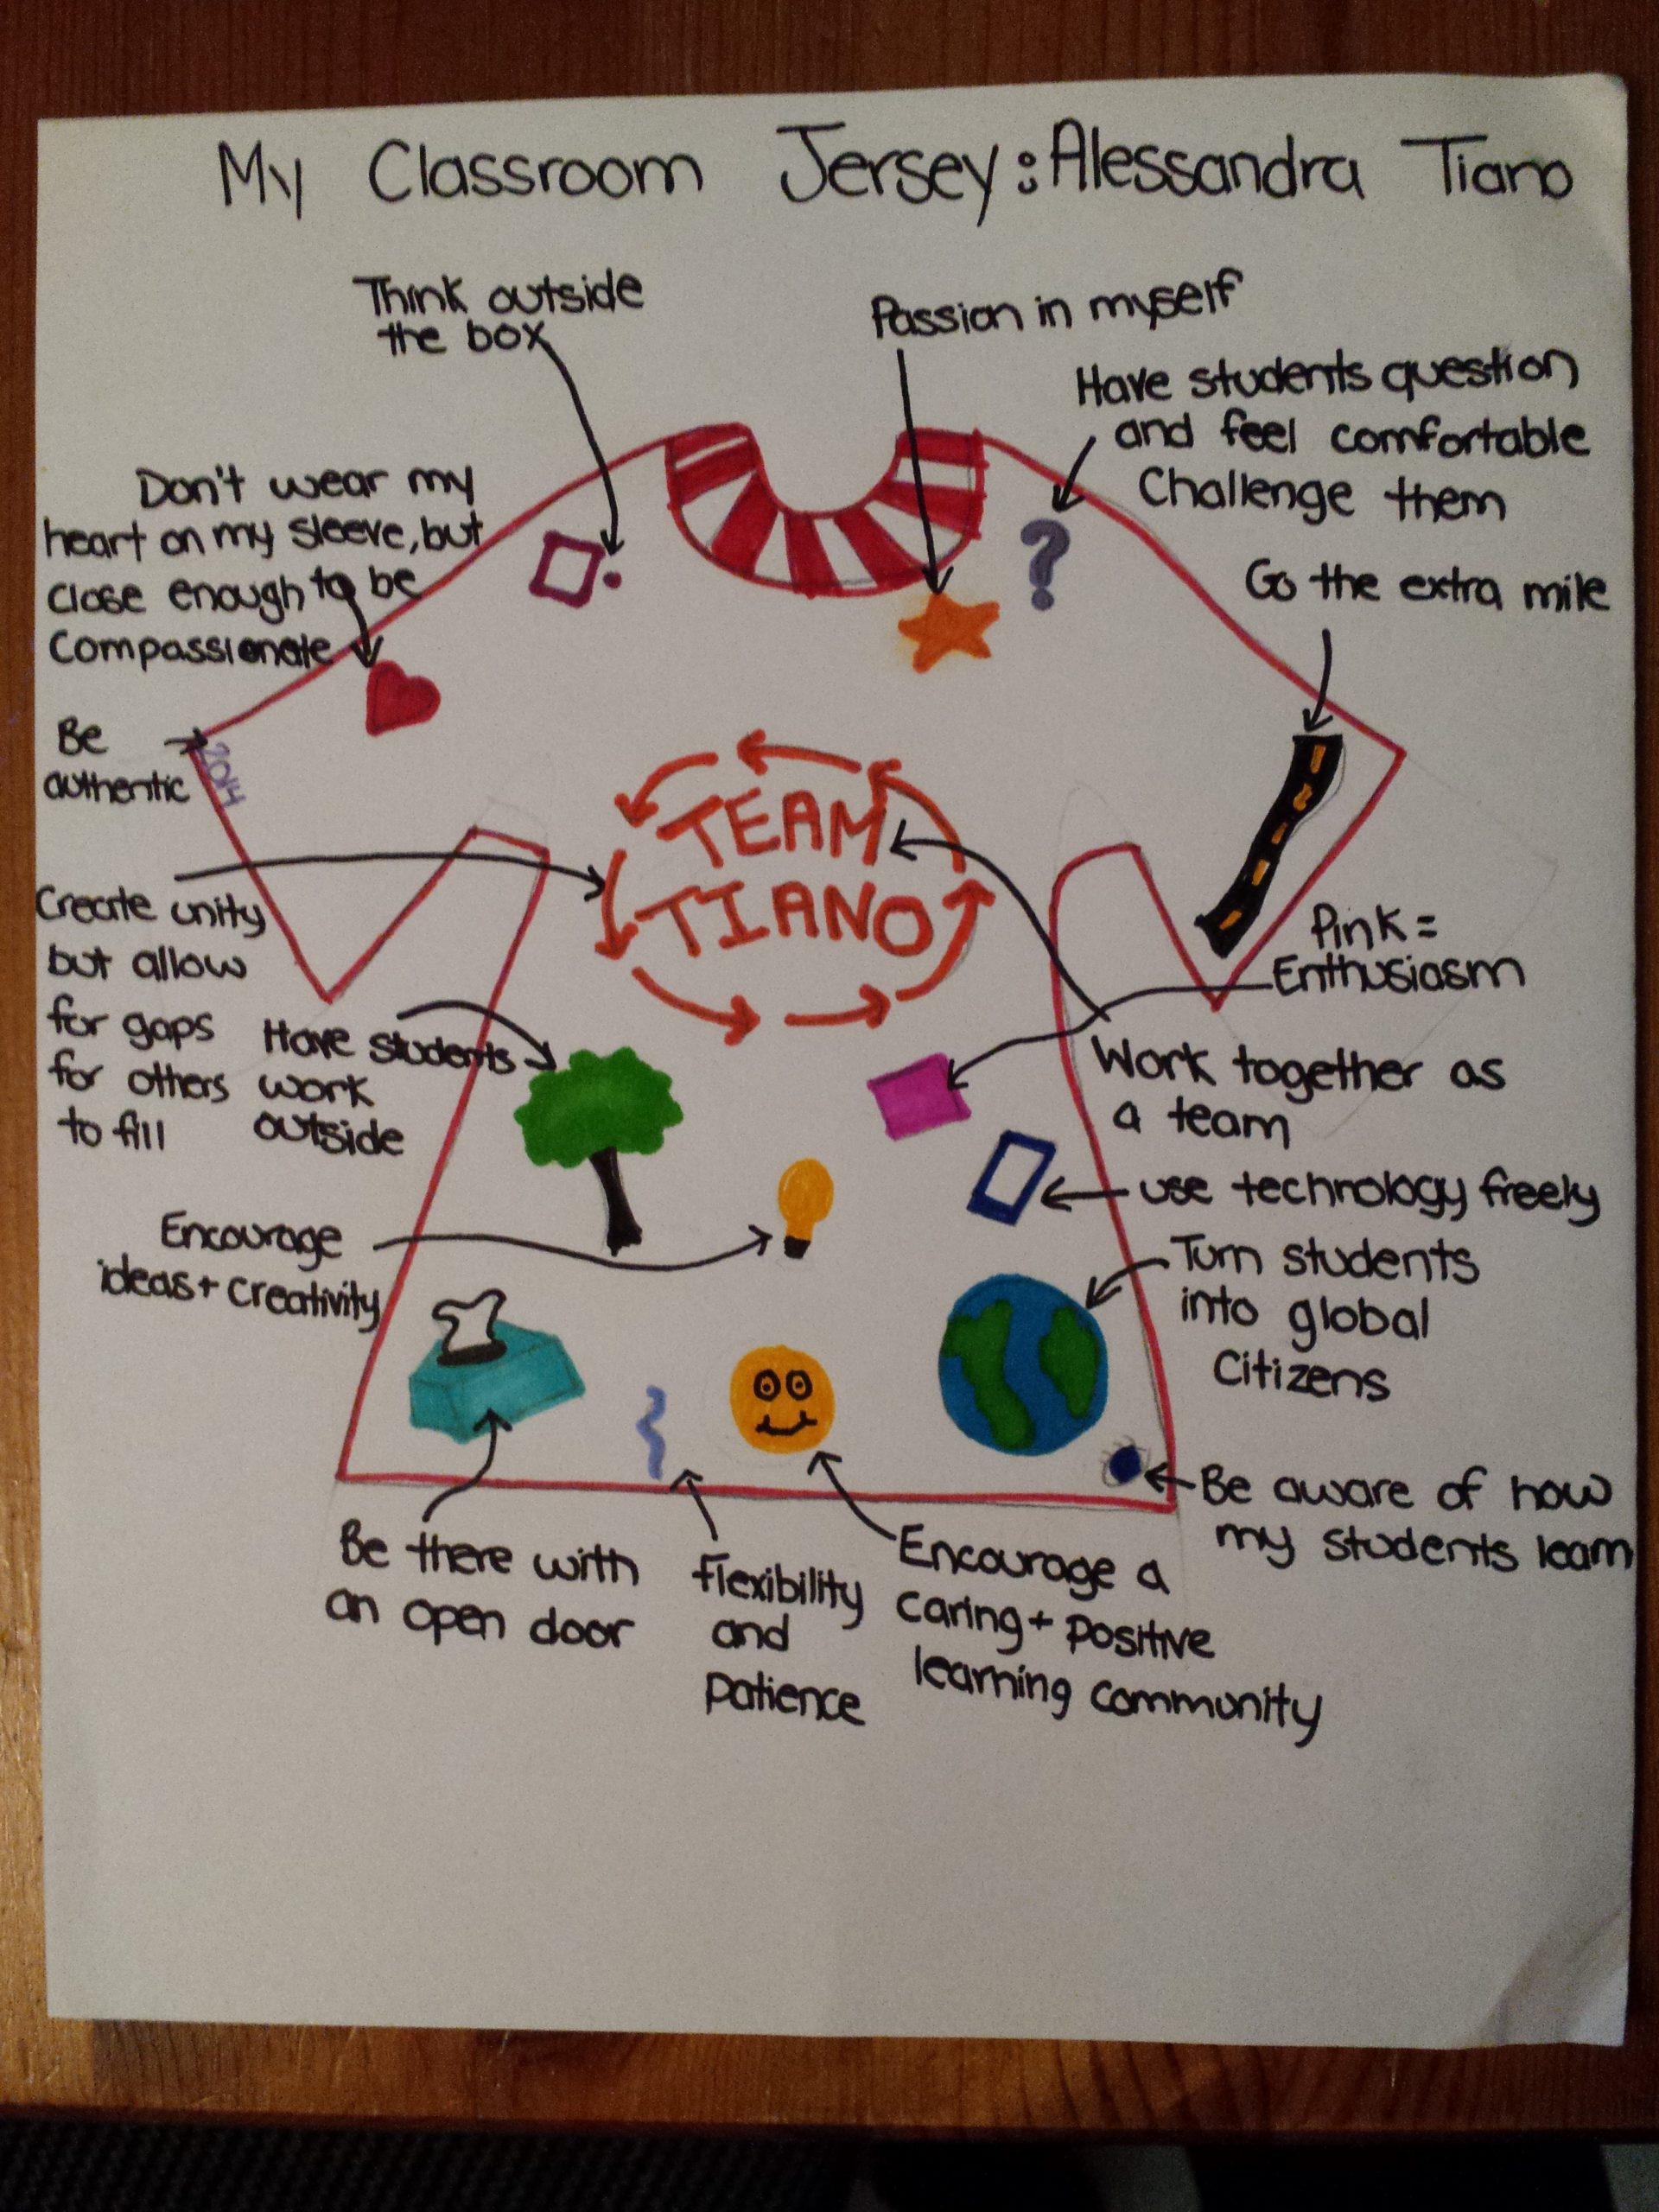 My Classroom Jersey: Alessandra Tiano
Think outside
the box
Passion in myself
Have students question
and feel comfortable
Challenge them
Don't wear my
heart on my sleeve, but
close enough to be
compassionate
Go the extra mile
Be
authentic
2014
TEAM
TIANO
Create unity
but allow
for gaps
for others
to fill
Pink =
Enthusiasm
Have students
work
outside
Work together as
a team
use technology freely
Encourage
ideas + creativity
Turn students
into global
Citizens
Be aware of how
my students learn
Be there with
an open door
Flexibility
and
Patience
Encourage a
caring + positive
learning community